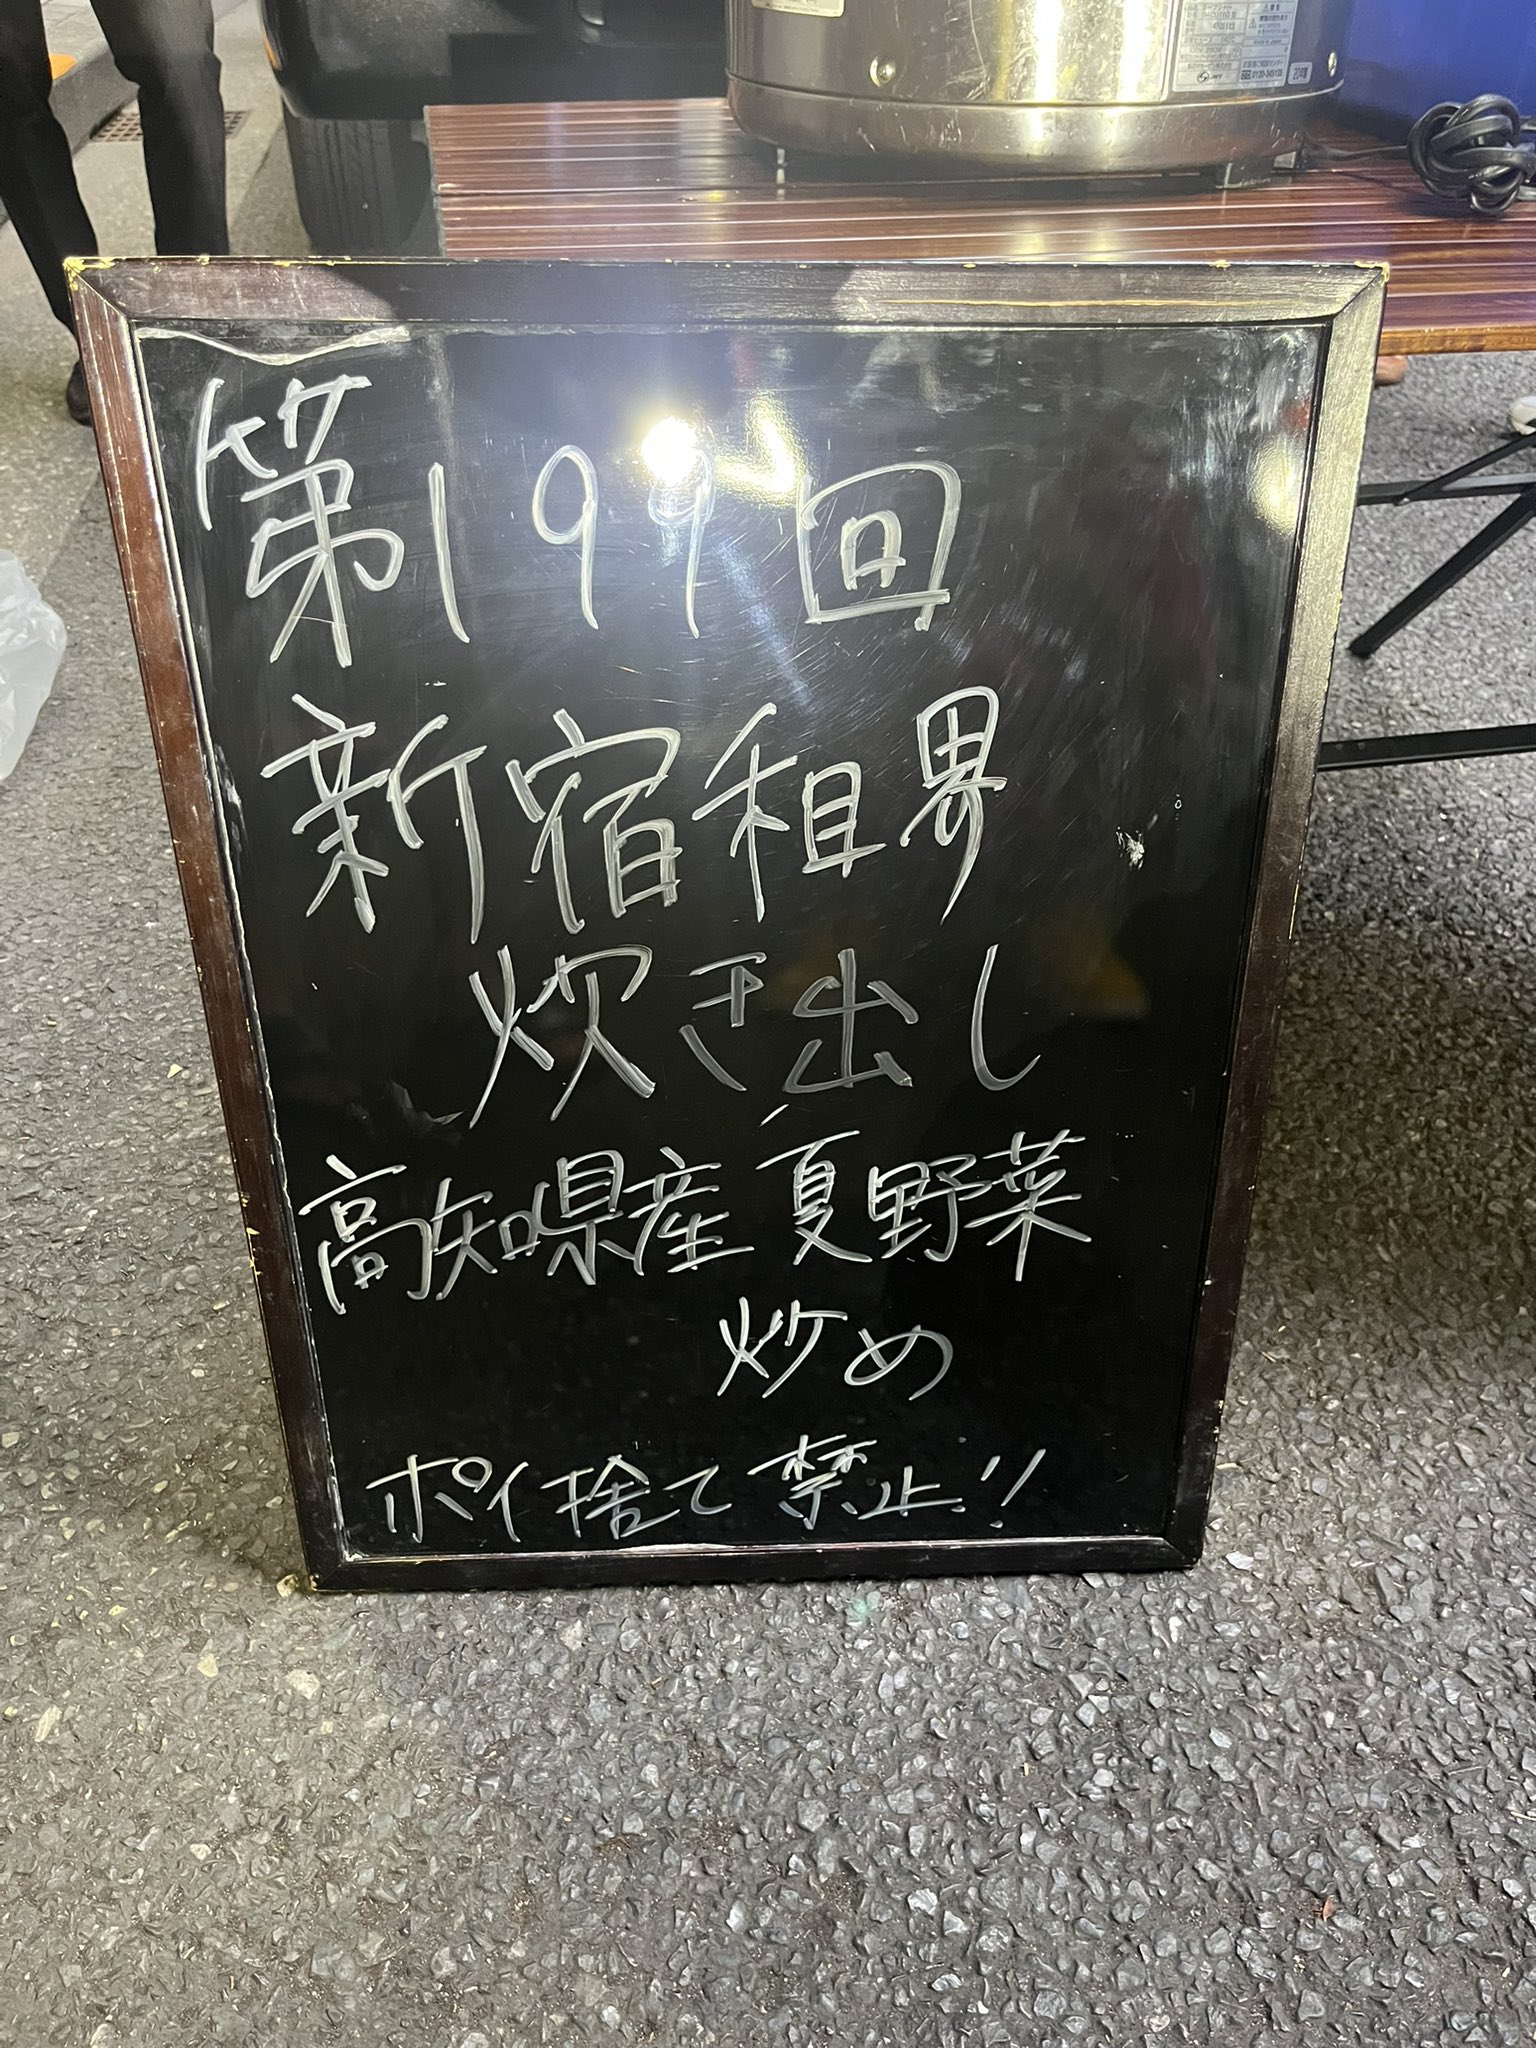 第199回
新宿租界
炊き出し
高知県産夏野菜
炒め
ポイ捨て禁止!!